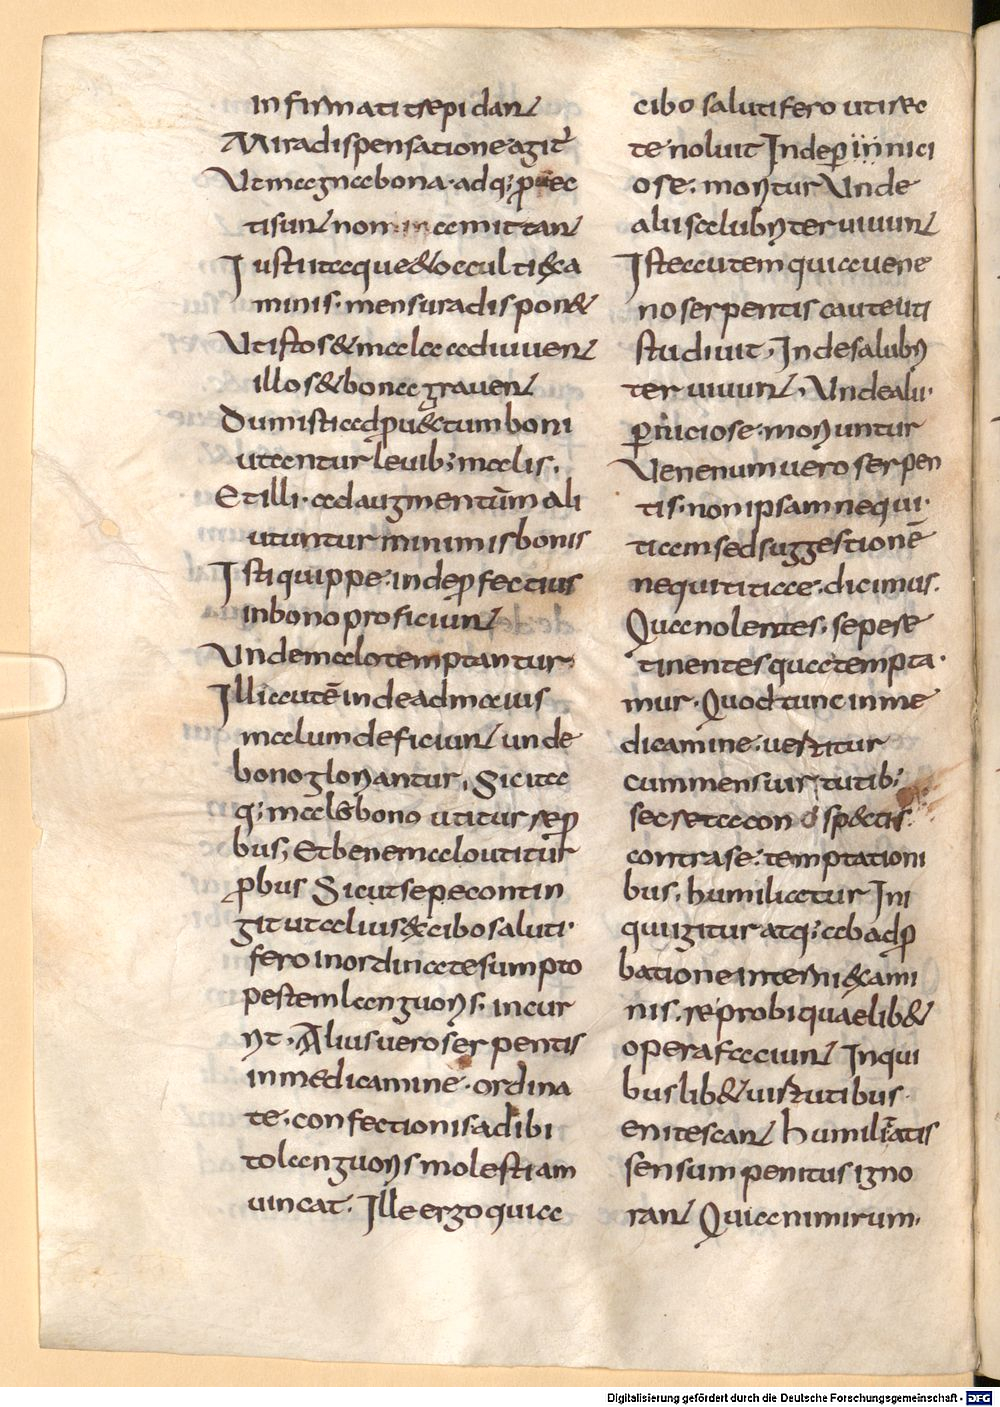 infirmati trepidant
Mira dispensatione agit
Ut magna bona · adq; prouec
tis unt non inmittant
Justi itaque & occulti exa
minis · mensura dispon&
Ut istos & mala adiuuent
illos & bona grauent
Dum isti ad prouectum boni
utantur leuib; malis .
Et illi · ad augmentum ali
utuntur minimis bonis
Isti quippe · inde perfectius
in bono proficiunt
Unde malo temptantur ·
Illi autē inde ad maius
malum deficiunt unde
bono gloriantur , Sic ita
q; malis bono utitur rep
bus , Et bene malo utitur
pbus Sicut sepe contin
git ut alius & cibo saluti ·
fero inordinate sumpto
pestem languoris · incur
rit · Alius uero serpentis
in medicamine · ordina
te · confectionis adibi
to languoris molestiam
uincat · Ille ergo quia
cibo salutifero uti rec
te noluit Inde pernici
ose · moritur Unde
alii salubriter uiuunt
Iste autem quia uene
no serpentis caute uti
studiuit , Inde salubri
ter uiuunt , Unde alii ·
perniciose · moriuntur
Venenum uero serpen
tis · non ipsam nequi ·
tiam sed suggestionē
nequititiae · dicimus ·
Qua nolentes · sepe re
tinentes quae tempta ·
mur · Quod tunc in me
dicamine · uertitur
cum mens uirtutib ;
secreta con spectis
contra se · temptationi
bus · humiliatur Ini
qui igitur atq; ab adp
batione interni exami
nis · reprobi quaelib&
opera faciunt In qui
buslib& uirtutibus ·
enitescant humilitatis
sensum penitus igno
rant Quia nimirum ·
Digitalisierung gefördert durch die Deutsche Forschungsgemeinschaft - DFG